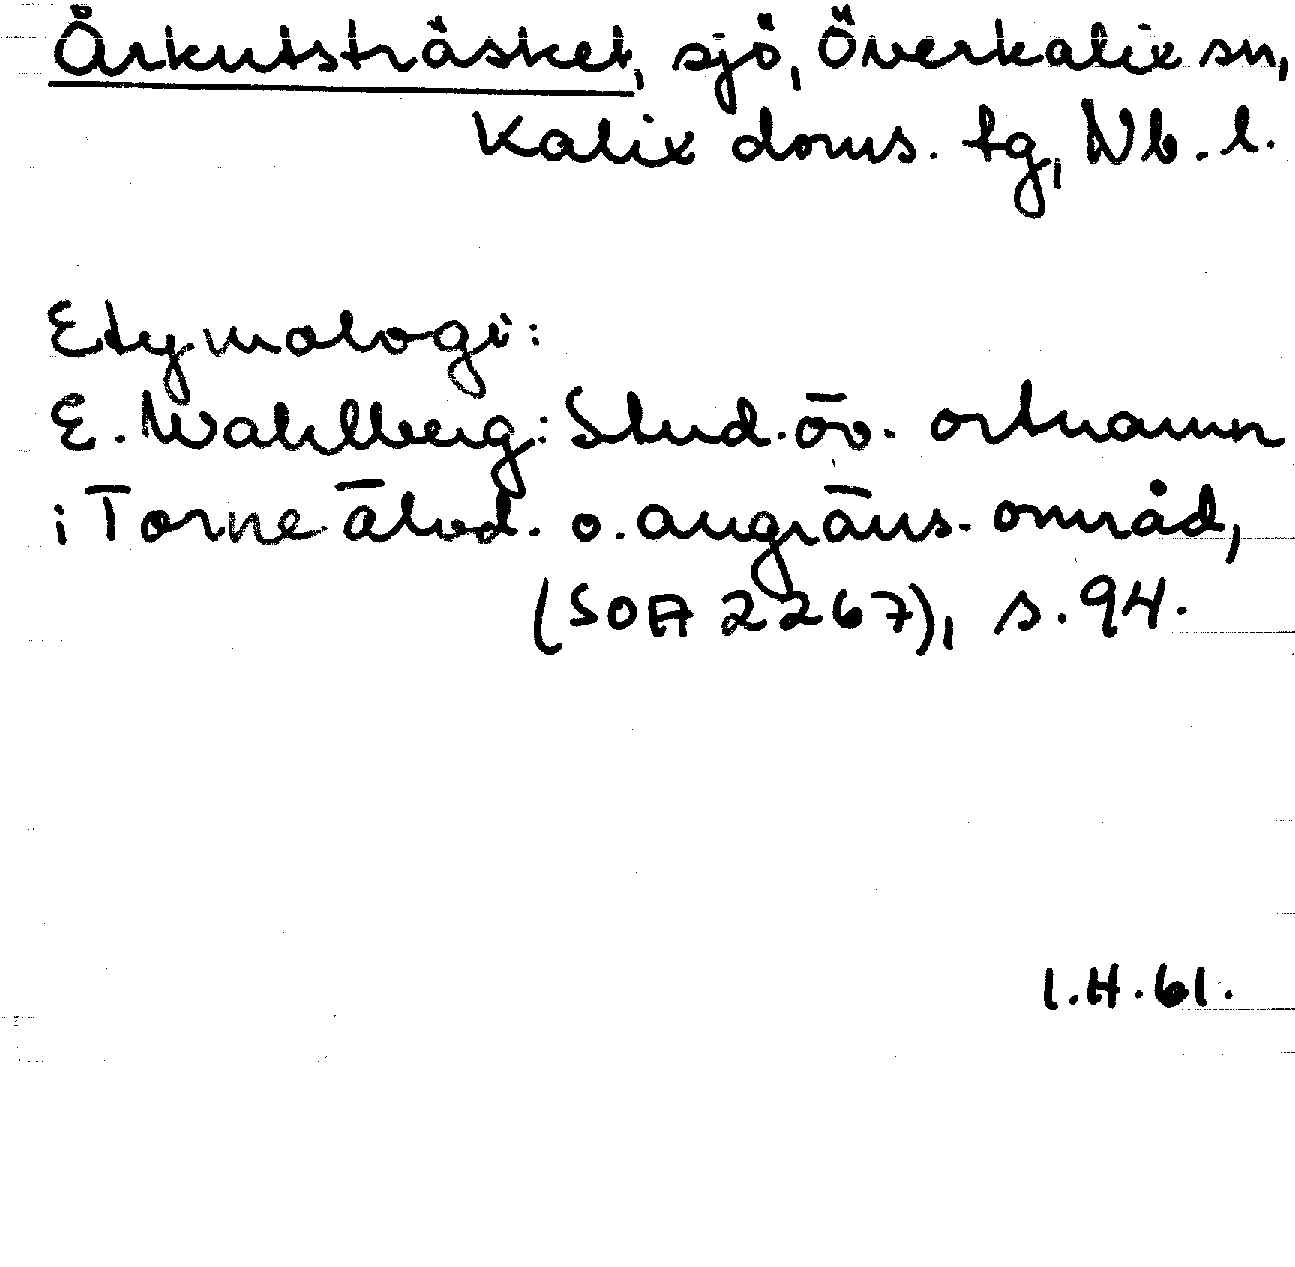 Årkutsträsket, sjö, Överkalix sn,
Kalix doms. tg, Nb. l.
Etymologi:
E. Wahlberg: Stud. öv. ortnamn
i Torne älvd. o. angräns. områd,
(SOA 2267), s. 94.
I.H.61.